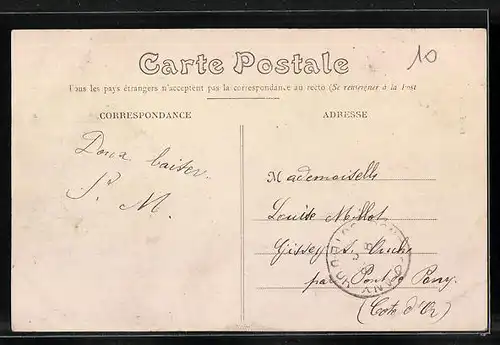 Carte Postale
10
Tous les pays étrangers n'acceptent pas la correspondance au recto (Se renseigner à la Post
CORRESPONDANCE
ADRESSE
Doux baiser.
P. M.
Mademoiselle
Louise Millot
Gissey s. Ouche
par Pont de Pany.
(Côte d'Or)